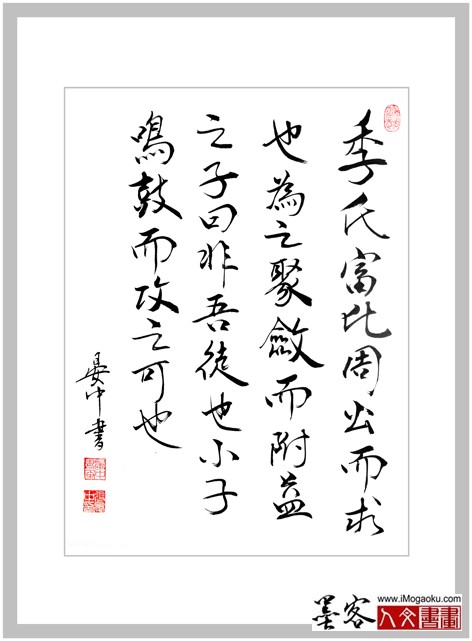 季氏富比周公而求
也為之聚斂而附益
之子曰非吾徒也小子
鳴鼓而攻之可也
晏中書
www.iMogaoku.com
墨客
人文書畫